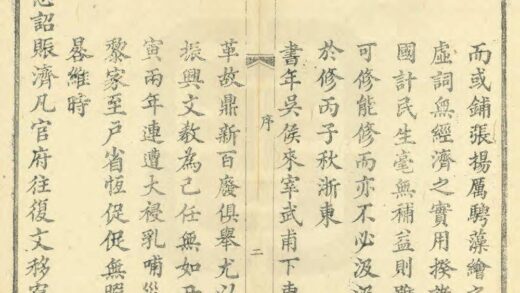 而或鋪張揚厲騁藻繪之
虛詞無經濟之實用揆
國計民生毫無補益則
可修能修而亦不必汲汲
於修丙子秋浙東
書年吳侯來宰武甫下車
序
二
革故鼎新百廢俱舉尤以
振興文教為己任無如
寅兩年連遭大祲乳哺災
黎家至戶省恆促促無暇
晷維時
恩詔賑濟凡官府往復文移